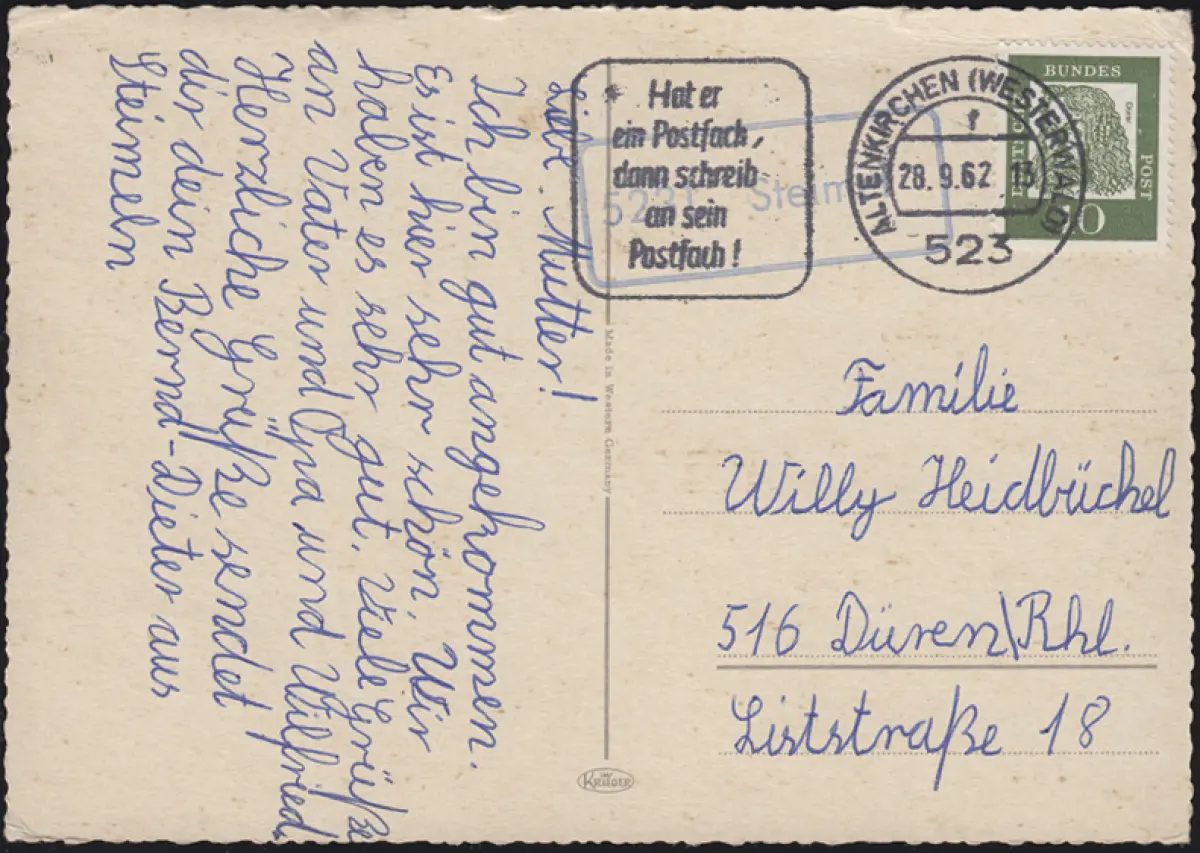 Liebe Mutter!
Ich bin gut angekommen.
Es ist hier sehr schön. Wir
haben es sehr gut. Viele Grüße
an Vater und Opa und Wilfried
Herzliche Grüße sendet
dir dein Bernd-Dieter aus
Steimeln
Made in Western Germany
KRÜGER
Hat er
ein Postfach,
dann schreib
an sein
Postfach!
Steim
ALTENKIRCHEN (WESTERWALD)
28.9.62
523
BUNDES
POST
Familie
Willy Heidbüchel
516 Düren\Rhl.
Liststraße 18